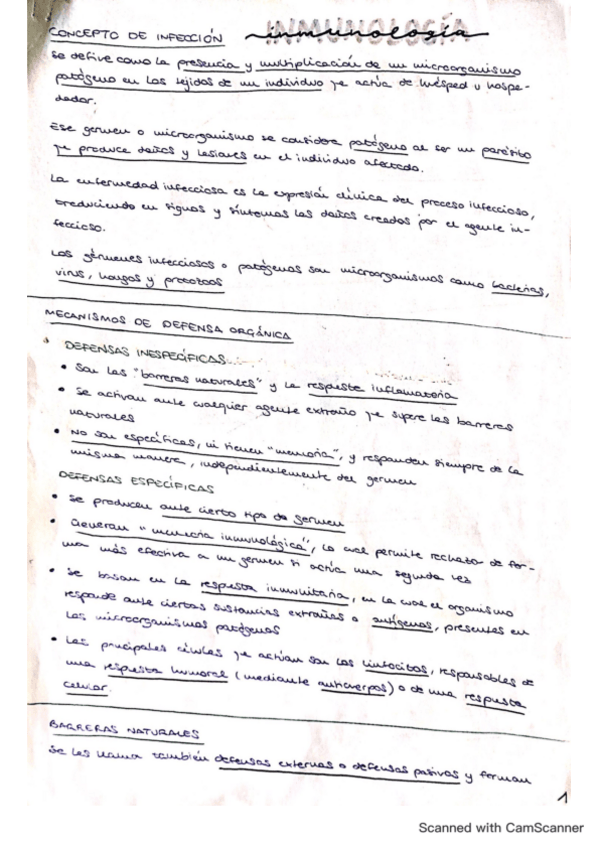 INMUNOLOGÍA
inmunología
CONCEPTO DE INFECCIÓN
Se define como la presencia y multiplicación de un microorganismo
patógeno en los tejidos de un individuo que actúa de huésped u hospe-
dador.
Ese germen o microorganismo se considera patógeno al ser un parásito
que produce daños y lesiones en el individuo afectado.
La enfermedad infecciosa es la expresión clínica del proceso infeccioso,
traduciendo en signos y síntomas los daños creados por el agente in-
feccioso.
Los gérmenes infecciosos o patógenos son microorganismos como bacterias,
virus, hongos y protozoos
MECANISMOS DE DEFENSA ORGÁNICA
DEFENSAS INESPECÍFICAS
• Son las "barreras naturales" y la respuesta inflamatoria
• Se activan ante cualquier agente extraño que supere las barreras
naturales
• No son específicas, ni tienen "memoria", y responden siempre de la
misma manera, independientemente del germen
DEFENSAS ESPECÍFICAS
• Se producen ante cierto tipo de germen
• Generan "memoria inmunológica", lo cual permite rechazar de for-
ma más efectiva a un germen si actúa una segunda vez
• Se basan en la respuesta inmunitaria, en la cual el organismo
responde ante ciertas sustancias extrañas o antígenos, presentes en
los microorganismos patógenos
• Las principales células que actúan son los linfocitos, responsables de
una respuesta humoral (mediante anticuerpos) o de una respuesta
celular.
BARRERAS NATURALES
Se les llama también defensas externas o defensas pasivas y forman
1
Scanned with CamScanner